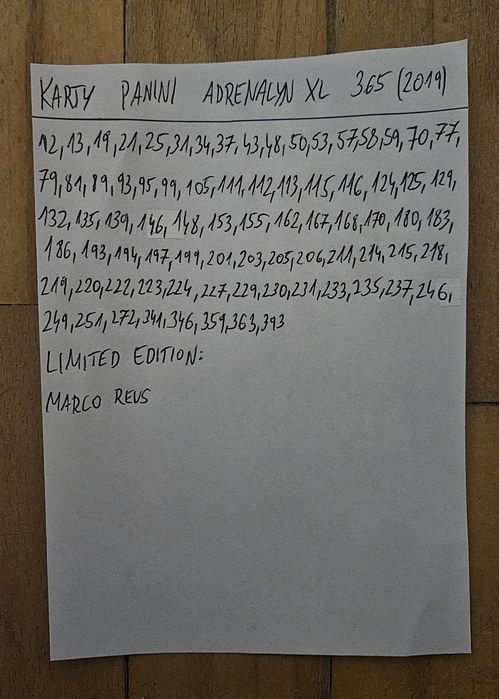 KARTY PANINI ADRENALYN XL 365 (2019)
12, 13, 19, 21, 25, 31, 34, 37, 43, 48, 50, 53, 57, 58, 59, 70, 77,
79, 81, 89, 93, 95, 99, 105, 111, 112, 113, 115, 116, 124, 125, 129,
132, 135, 139, 146, 148, 153, 155, 162, 167, 168, 170, 180, 183,
186, 193, 194, 197, 199, 201, 203, 205, 206, 211, 214, 215, 218,
219, 220, 222, 223, 224, 227, 229, 230, 231, 233, 235, 237, 246,
249, 251, 272, 341, 346, 359, 363, 393
LIMITED EDITION:
MARCO REUS